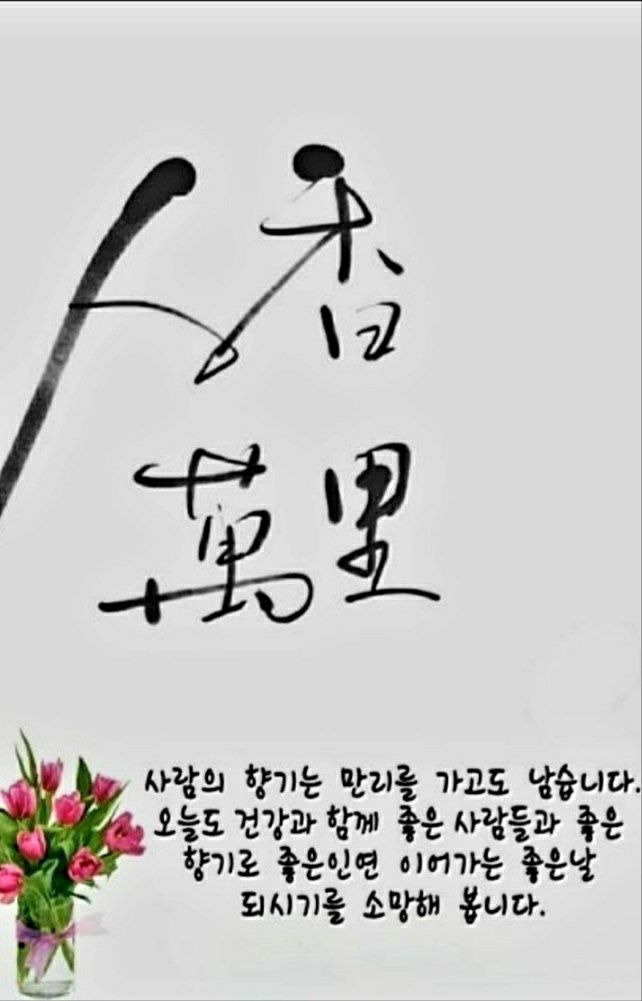 人香
萬里
사람의 향기는 만리를 가고도 남습니다.
오늘도 건강과 함께 좋은 사람들과 좋은
향기로 좋은인연 이어가는 좋은날
되시기를 소망해 봅니다.